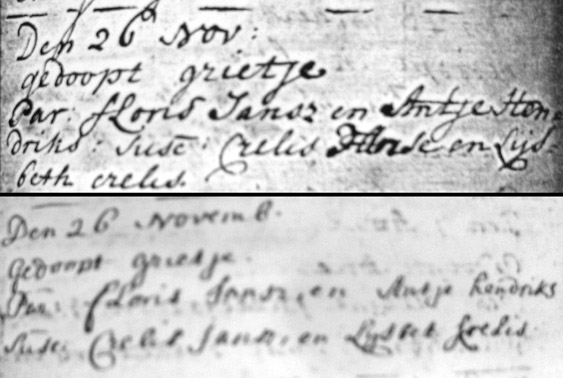 Den 26 Nov:
gedoopt grietje
Par: fLoris Jansz en Antje Hen=
driks: Susc: Crelis en Lijs=
beth crelis.
Den 26 Novemb.
Gedoopt grietje.
Par: fLoris Jansz, en Antje hendriks
Susc: Crelis Jansz, en Lijsbet Krelis